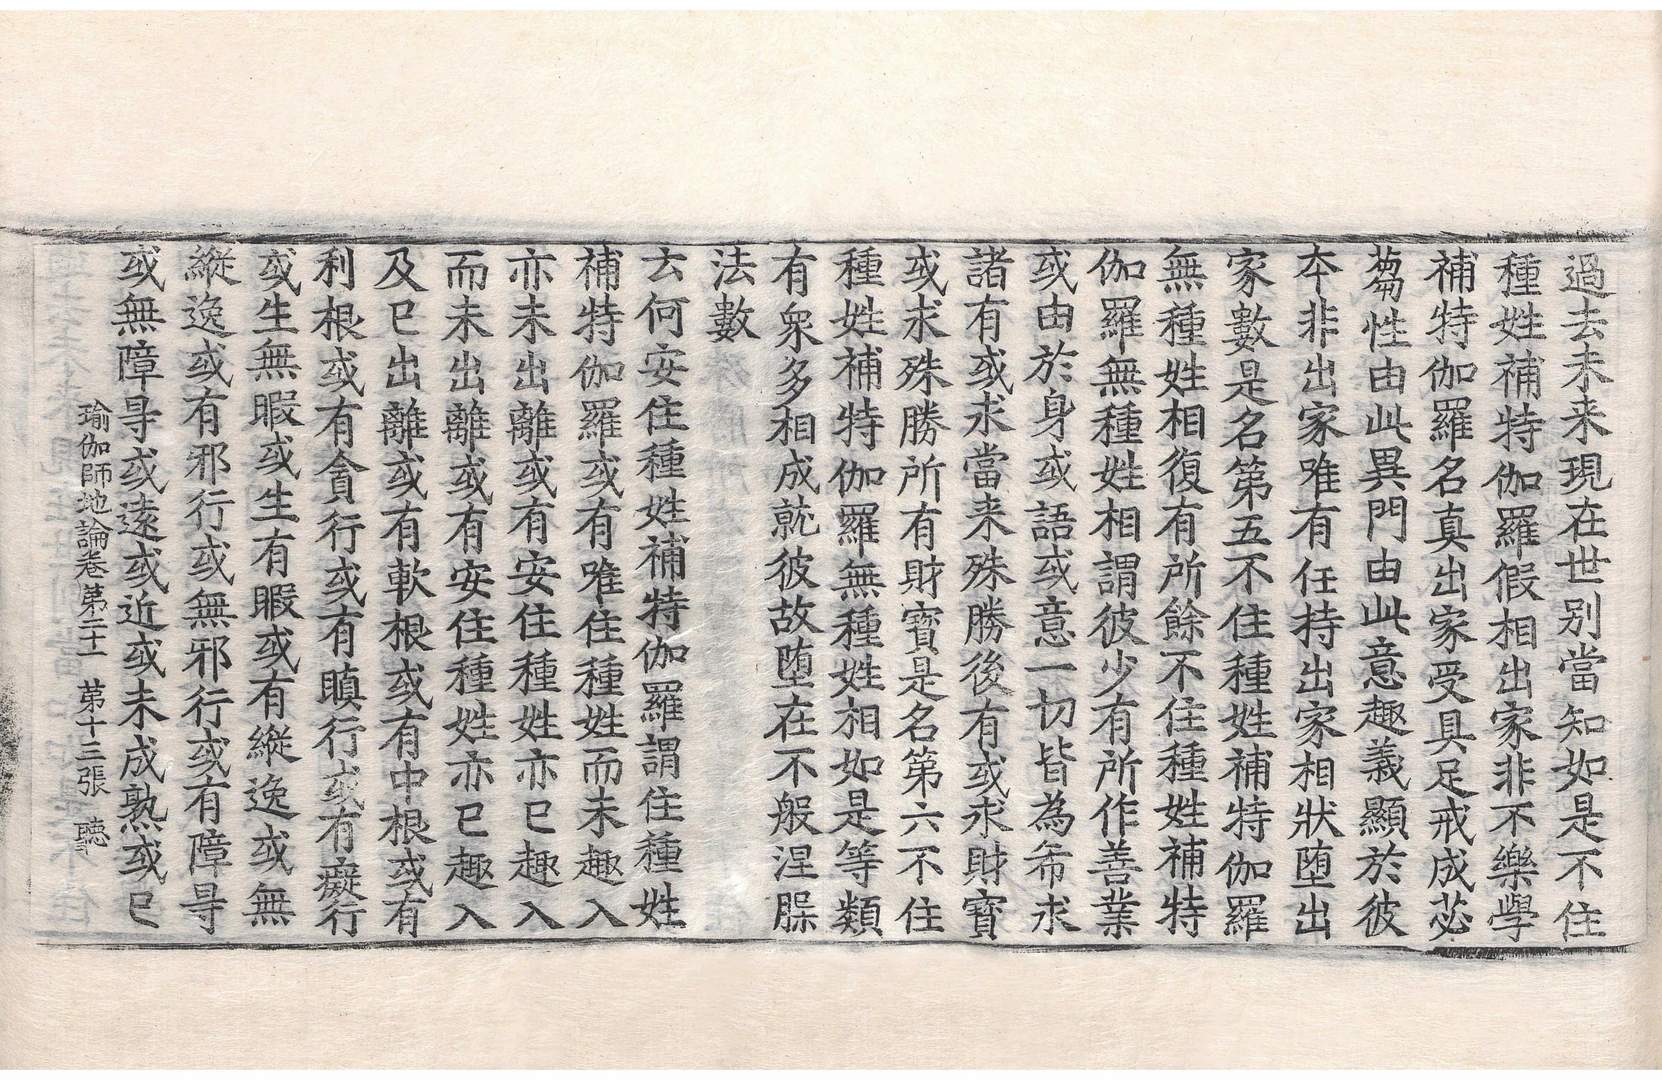 過去未来現在世别當知如是不住
種姓補特伽羅假相出家非不樂學
補特伽羅名真出家受具足戒成苾
蒭性由此異門由此意趣義顯於彼
本非出家唯有任持出家相狀堕出
家數是名第五不住種姓補特伽羅
無種姓相復有所餘不住種姓補特
伽羅無種姓相謂彼少有所作善業
或由於身或語或意一切皆為希求
諸有或求當来殊勝後有或求財寳
或求殊勝所有財寳是名第六不住
種姓補特伽羅無種姓相如是等類
有衆多相成就彼故堕在不般涅槃
法數
云何安住種姓補特伽羅謂住種姓
補特伽羅或有唯住種姓而未趣入
亦未出離或有安住種姓亦已趣入
而未出離或有安住種姓亦已趣入
及已出離或有軟根或有中根或有
利根或有貪行或有瞋行或有癡行
或生無暇或生有暇或有縱逸或無
縱逸或有邪行或無邪行或有障㝵
或無障㝵或遠或近或未成熟或已
瑜伽師地論卷第二十一　第十三張　聽